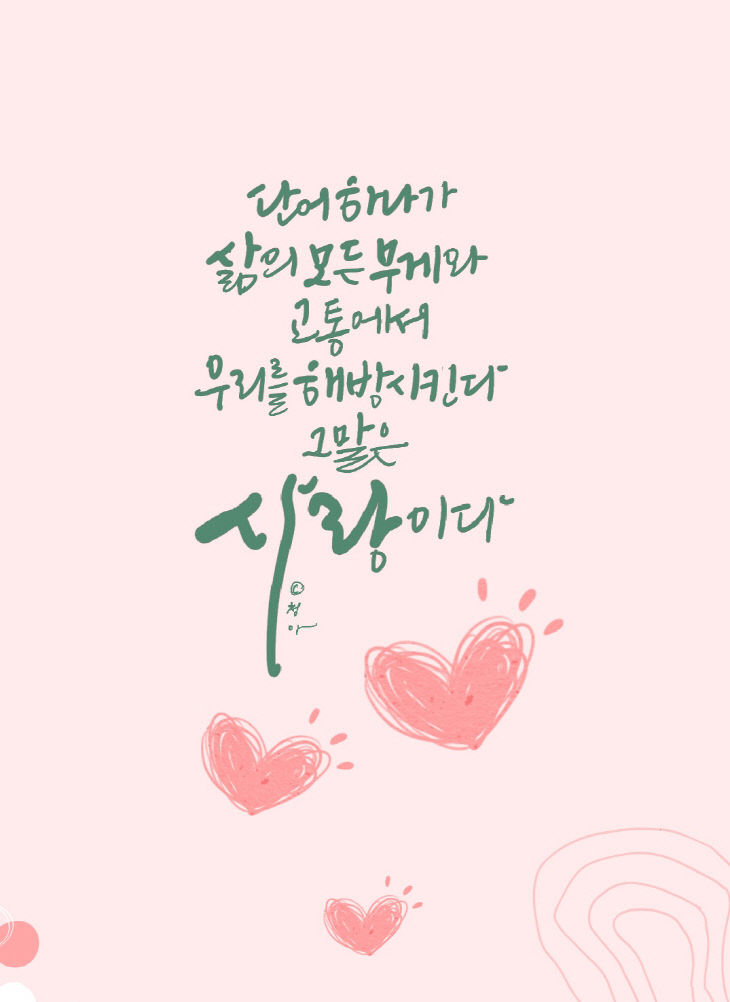 단어 하나가
삶의 모든 무게와
고통에서
우리를 해방시킨다
그 말은
사랑이다
©청아